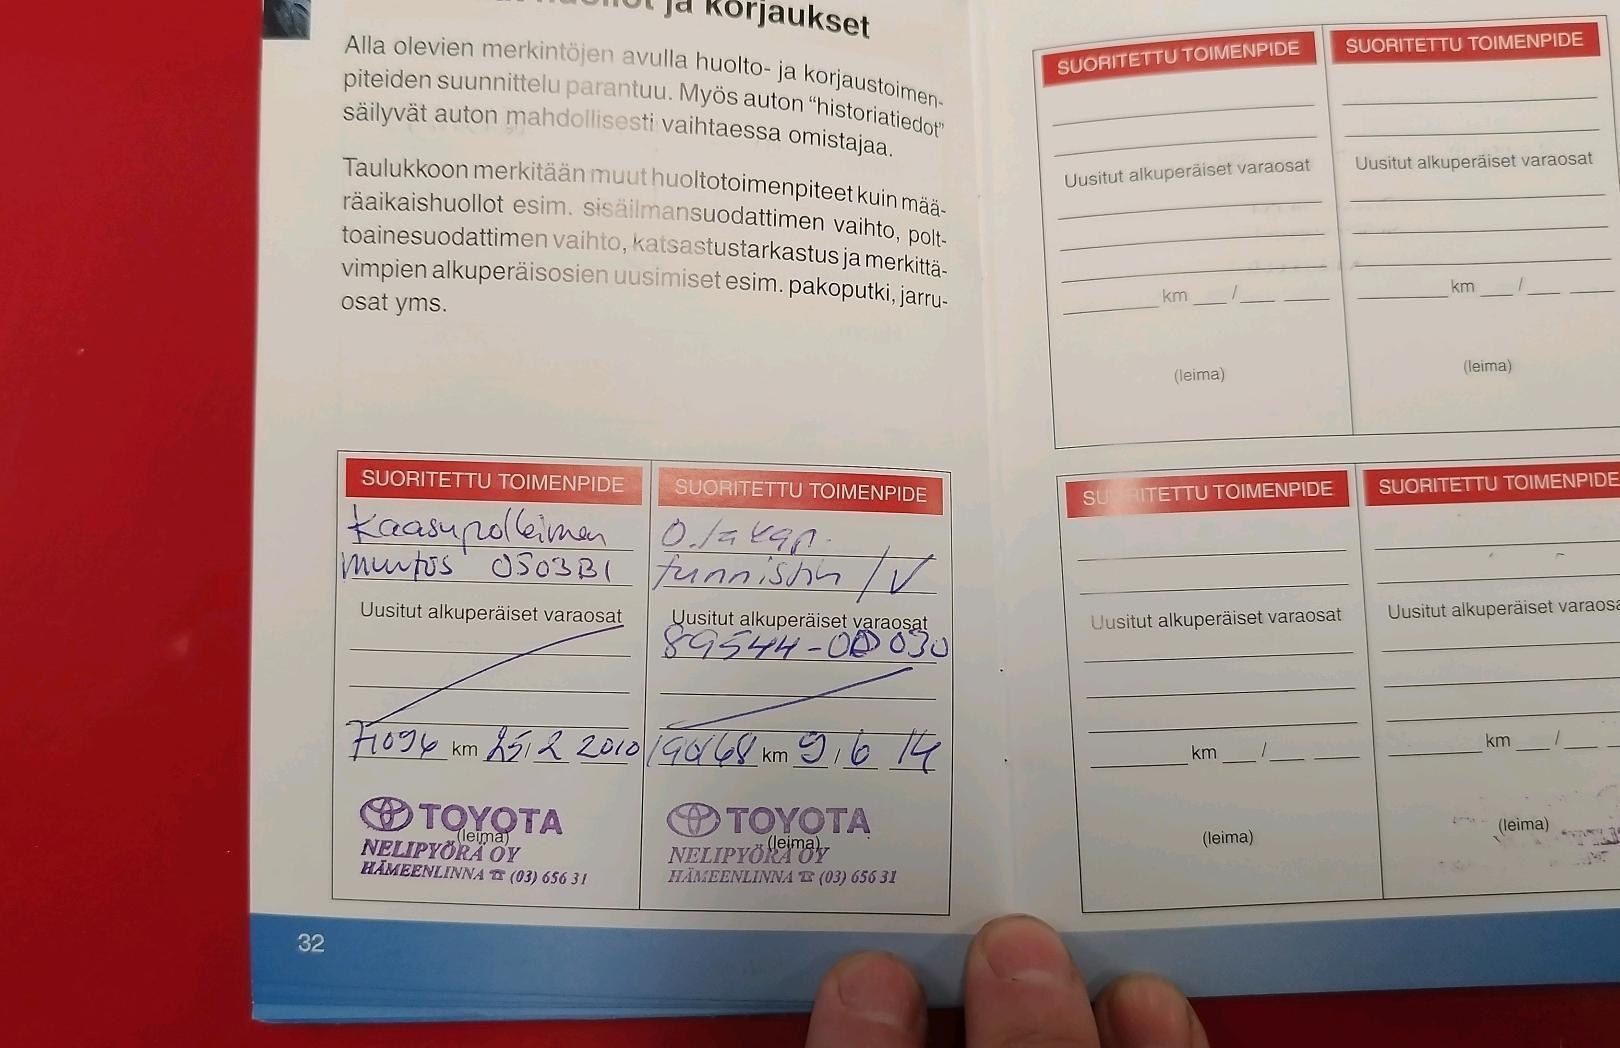 ja korjaukset
Alla olevien merkintöjen avulla huolto- ja korjaustoimen-
piteiden suunnittelu parantuu. Myös auton “historiatiedot”
säilyvät auton mahdollisesti vaihtaessa omistajaa.
Taulukkoon merkitään muut huoltotoimenpiteet kuin mää-
räaikaishuollot esim. sisäilmansuodattimen vaihto, polt-
toainesuodattimen vaihto, katsastustarkastus ja merkittä-
vimpien alkuperäisosien uusimiset esim. pakoputki, jarru-
osat yms.
SUORITETTU TOIMENPIDE
Kaasupolkimen
muutos 0503B1
Uusitut alkuperäiset varaosat
71096 km 25, 2 2010
TOYOTA
(leima)
NELIPYÖRÄ OY
HÄMEENLINNA ☎ (03) 656 31
SUORITETTU TOIMENPIDE
tunnistin / V
Uusitut alkuperäiset varaosat
89544-00030
km 9, 6 14
TOYOTA
(leima)
NELIPYÖRÄ OY
HÄMEENLINNA ☎ (03) 656 31
32
SUORITETTU TOIMENPIDE
Uusitut alkuperäiset varaosat
km /
(leima)
SUORITETTU TOIMENPIDE
Uusitut alkuperäiset varaosat
km /
(leima)
SUORITETTU TOIMENPIDE
Uusitut alkuperäiset varaosat
km /
(leima)
SUORITETTU TOIMENPIDE
Uusitut alkuperäiset varaosa
km /
(leima)